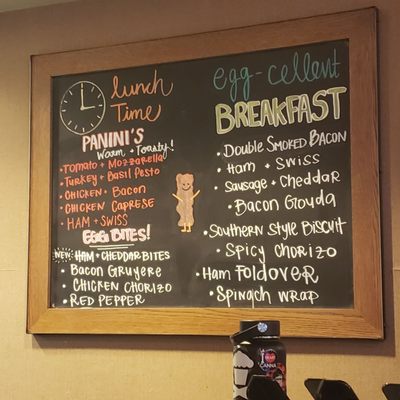 lunch
Time
PANINI'S
Warm + Toasty!
· TOMATO + MOZZARELLA
· TURKEY + BASIL PESTO
· CHICKEN + BACON
· CHICKEN CAPRESE
· HAM + SWISS
EGG BITES!
NEW HAM + CHEDDAR BITES
· BACON GRUYERE
· CHICKEN CHORIZO
· RED PEPPER
egg-cellent
BREAKFAST
· Double SMOKED BACON
· HAM + SWISS
· Sausage + Cheddar
· Bacon Gouda
· Southern Style Biscuit
· Spicy Chorizo
· Ham Foldover
· Spinach WRAP